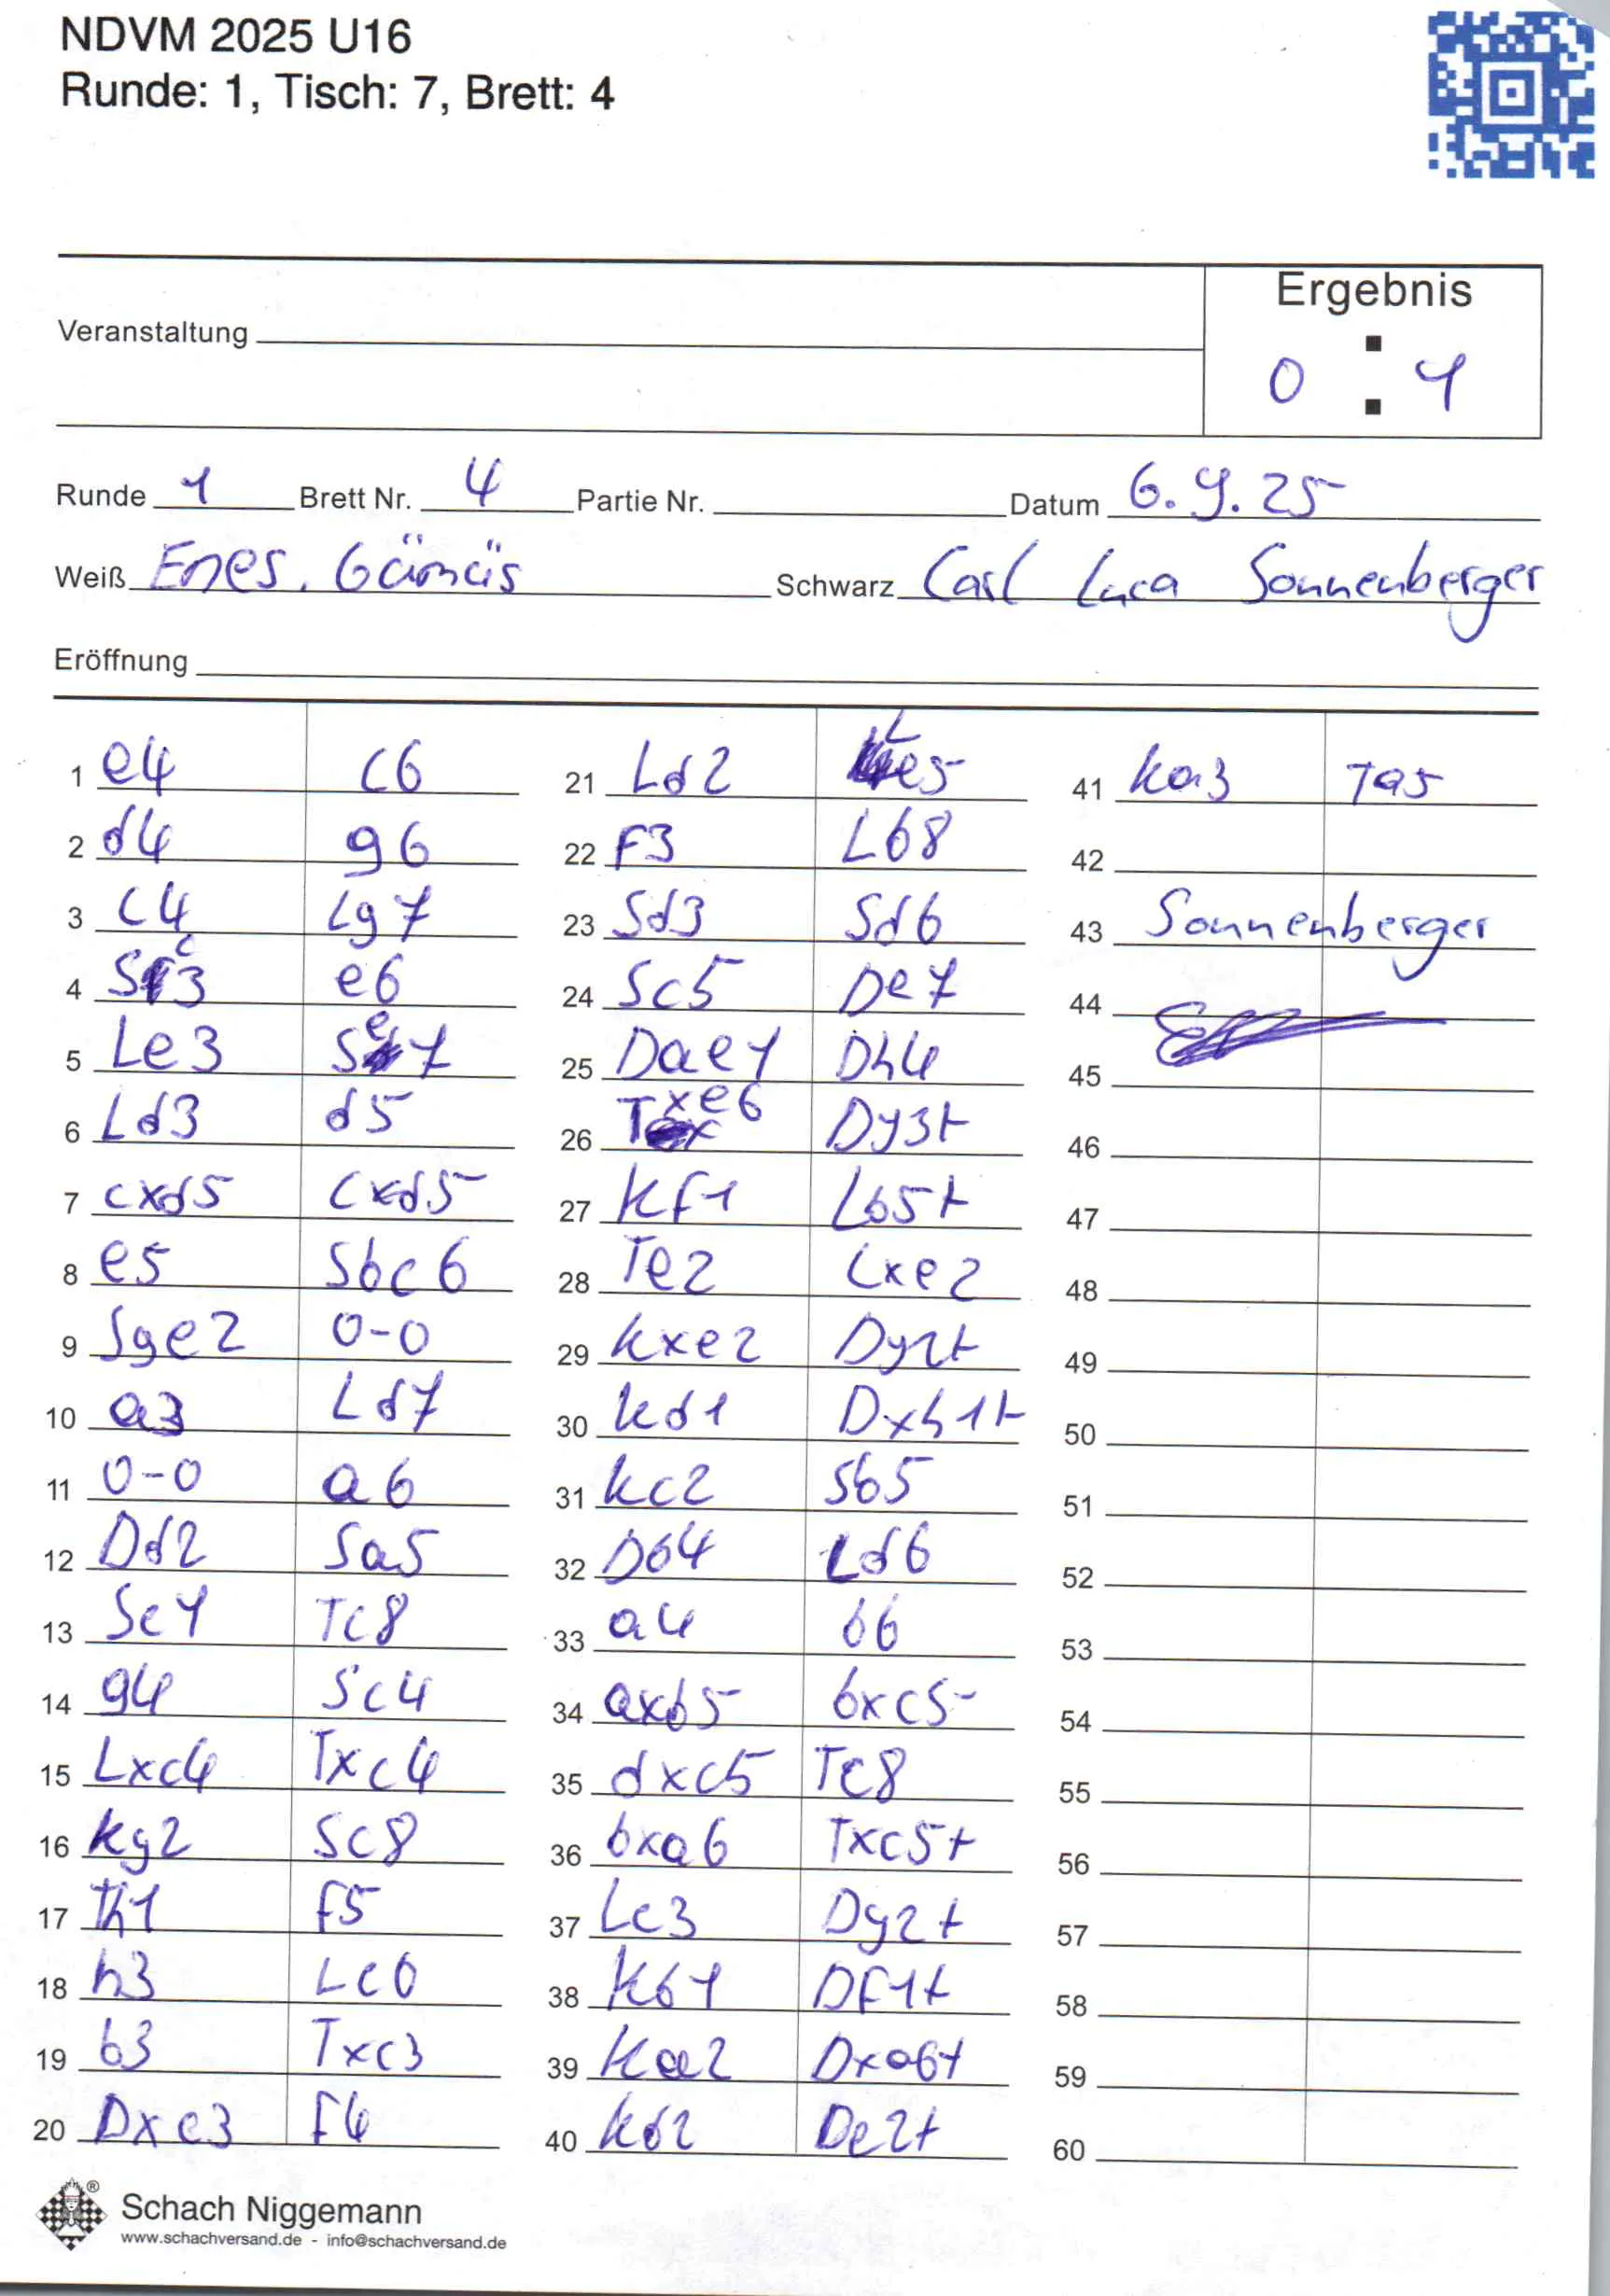 NDVM 2025 U16
Runde: 1, Tisch: 7, Brett: 4
Ergebnis
Veranstaltung
0 : 1
Runde 1 Brett Nr. 4 Partie Nr. Datum 6.9.25
Weiß Enes. Gümüs Schwarz Carl Luca Sonnenberger
Eröffnung
1 e4 c6
2 d4 g6
3 c4 Lg7
4 Sc3 e6
5 Le3 Se7
6 Ld3 d5
7 cxd5 cxd5
8 e5 Sbc6
9 Sge2 0-0
10 a3 Ld7
11 0-0 a6
12 Dd2 Sa5
13 Sc1 Tc8
14 g4 Sc4
15 Lxc4 Txc4
16 Kg2 Sc8
17 Th1 f5
18 h3 Lc6
19 b3 Txc3
20 Dxc3 f4
21 Ld2 Le5
22 F3 Lb8
23 Sd3 Sd6
24 Sc5 De7
25 Dae1 Dh4
26 Txe6 Dg3+
27 Kf1 Lb5+
28 Te2 Lxe2
29 Kxe2 Dg2+
30 Kd1 Dxh1+
31 Kc2 Sb5
32 Db4 Ld6
33 a4 b6
34 axb5 bxc5
35 dxc5 Tc8
36 bxa6 Txc5+
37 Lc3 Dg2+
38 Kb1 Df1+
39 Ka2 Dxa6+
40 Kb2 De2+
41 Ka3 Ta5
42
43 Sonnenberger
44
45
46
47
48
49
50
51
52
53
54
55
56
57
58
59
60
Schach Niggemann
www.schachversand.de - info@schachversand.de